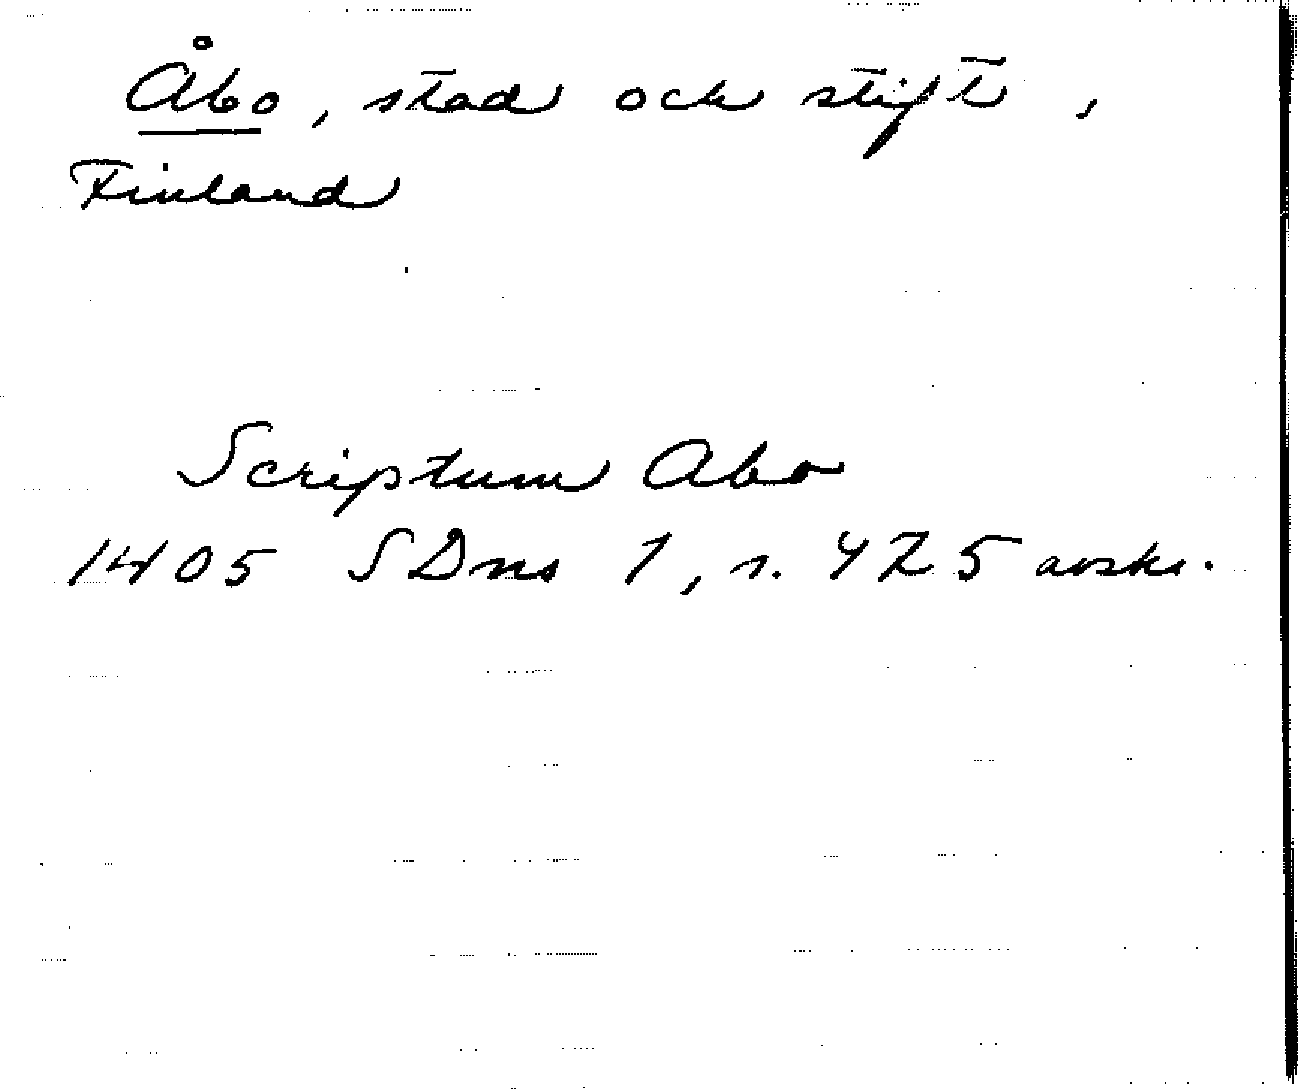 Åbo, stad och stift,
Finland
Scriptum Abo
1405 SDns 1, s. 425 avskr.